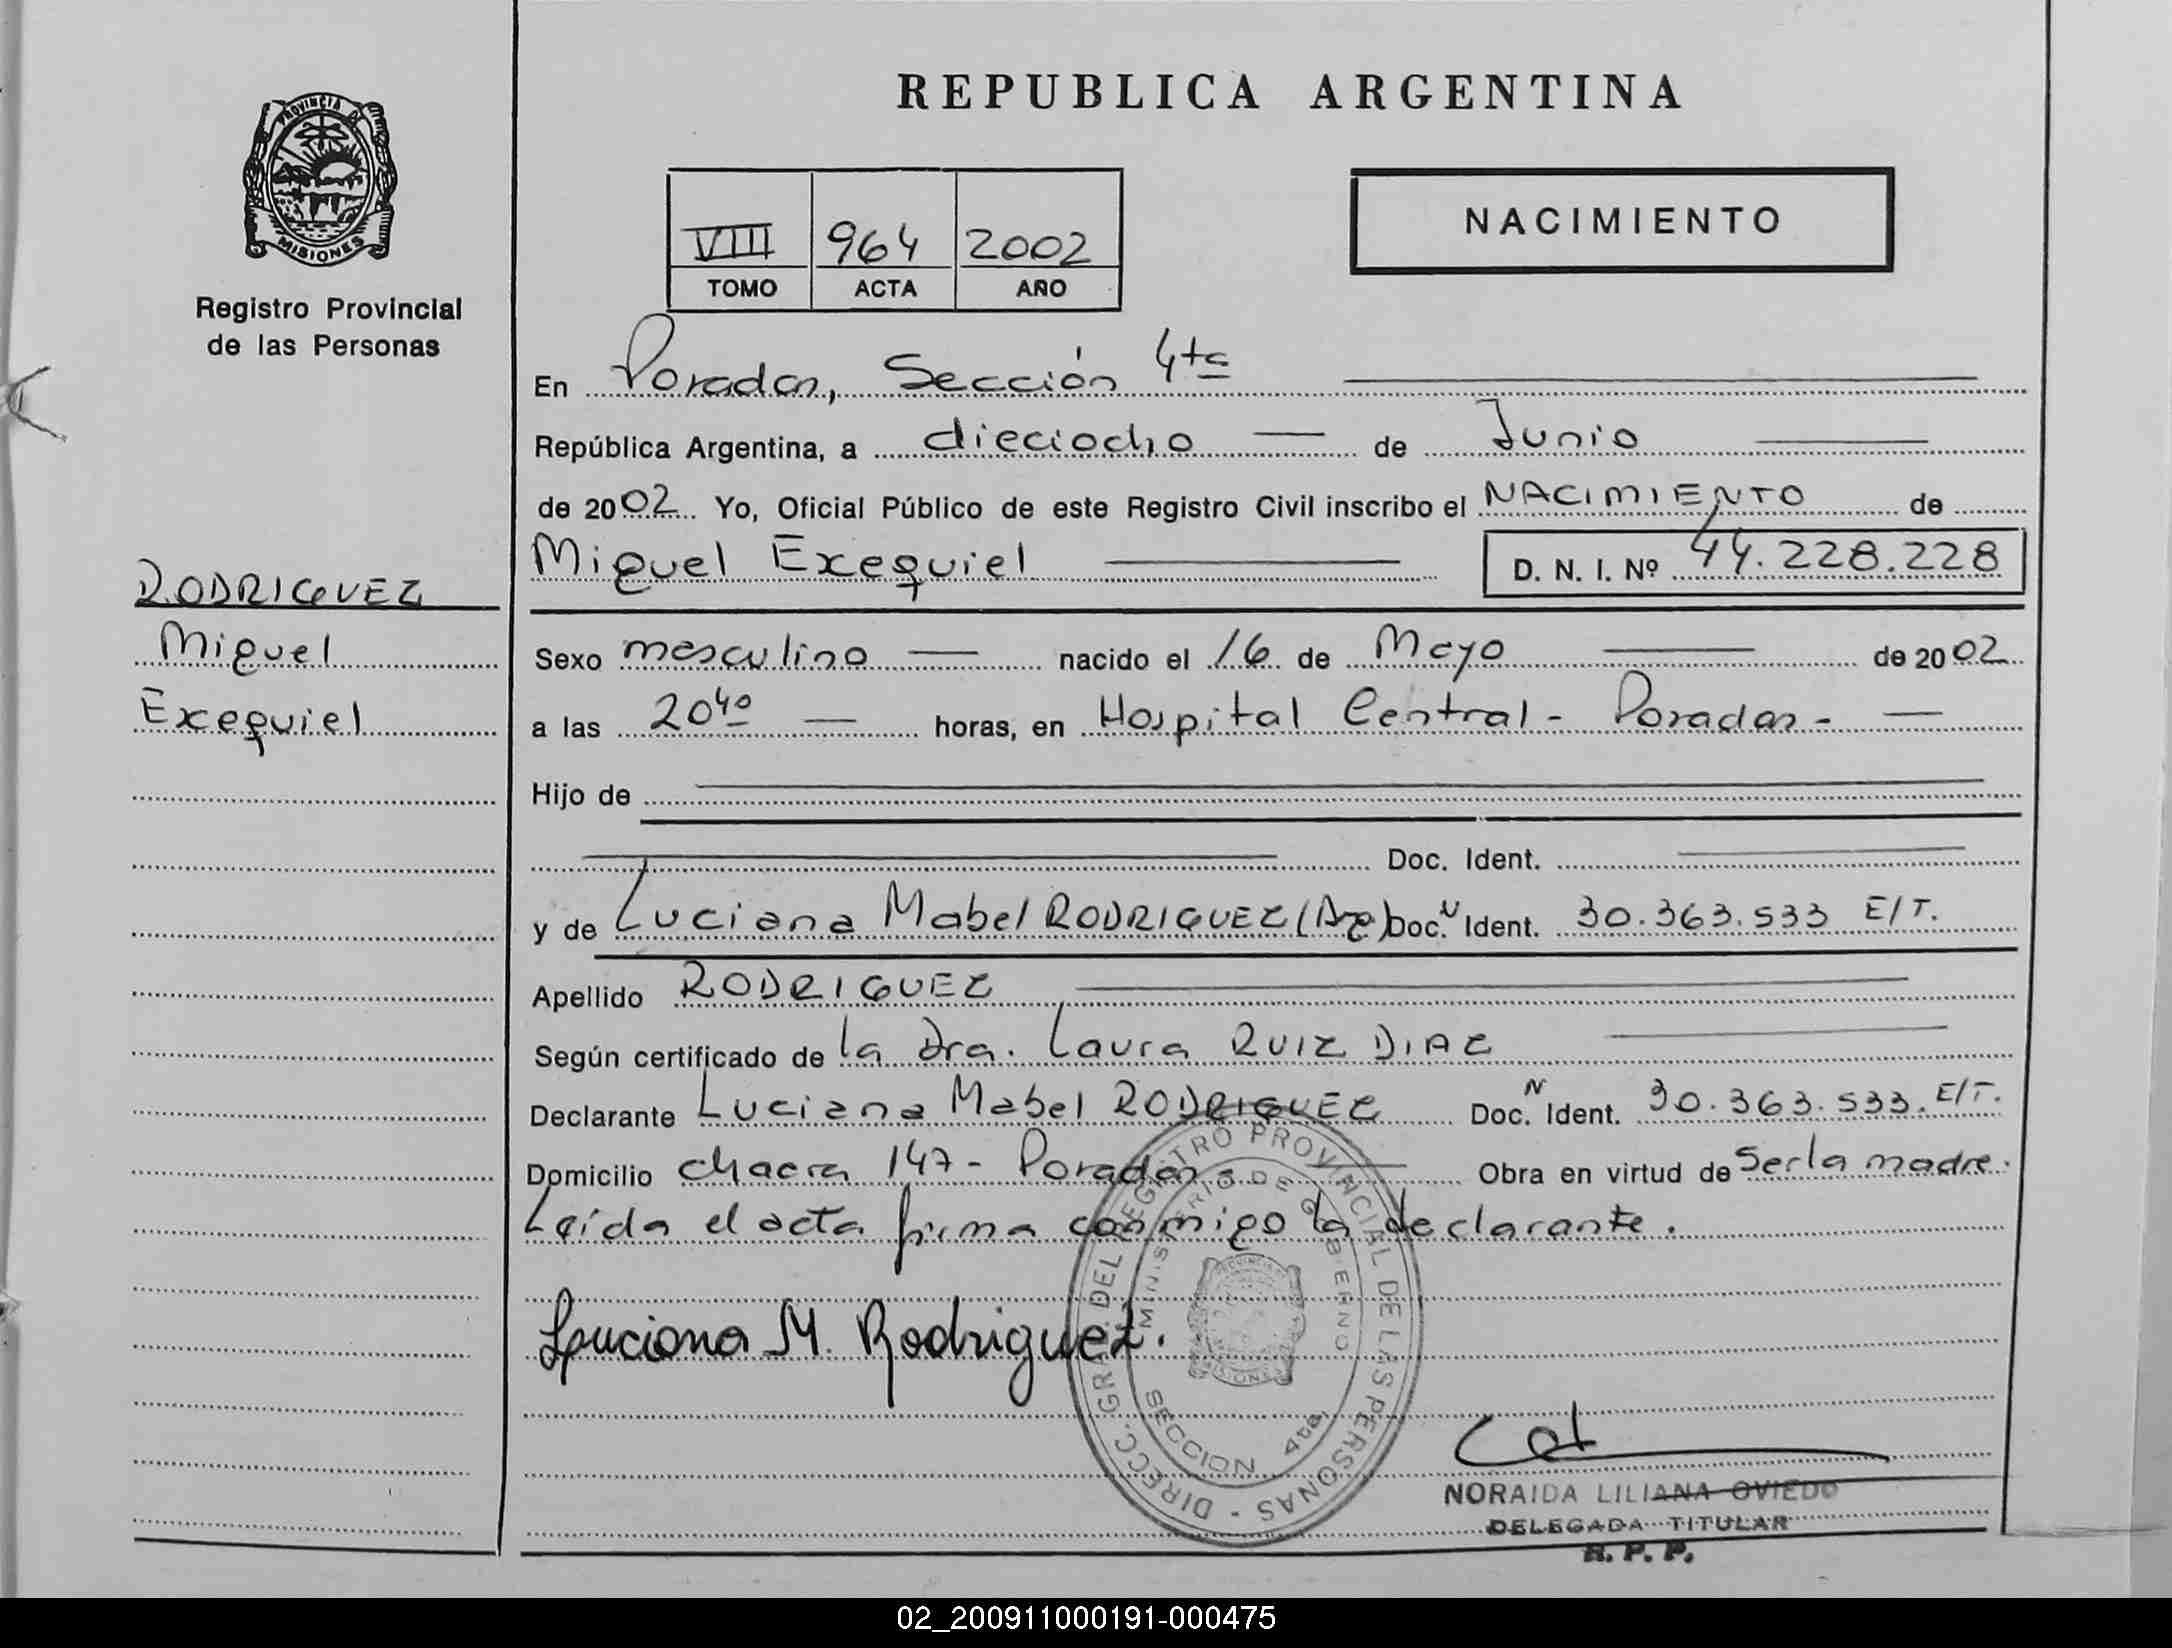 REPUBLICA ARGENTINA
PROVINCIA DE
MISIONES
Registro Provincial
de las Personas
VIII 964 2002
TOMO ACTA AÑO
NACIMIENTO
RODRIGUEZ
Miguel
Exequiel
En Posadas, Sección 4ta
República Argentina, a dieciocho de Junio
de 2002 Yo, Oficial Público de este Registro Civil inscribo el NACIMIENTO de
Miguel Exequiel D. N. I. Nº 44.228.228
Sexo masculino nacido el 16 de Mayo de 2002
a las 20 40 horas, en Hospital Central - Posadas -
Hijo de
Doc. Ident.
y de Luciana Mabel RODRIGUEZ (Arg) Doc. N Ident. 30.363.533 E/T.
Apellido RODRIGUEZ
Según certificado de la Dra. Laura RUIZ DIAZ
Declarante Luciana Mabel RODRIGUEZ Doc. N Ident. 30.363.533. E/T.
Domicilio chacra 147 - Posadas - Obra en virtud de Ser la madre.
Leída el acta firma conmigo la declarante.
Luciana M. Rodriguez.
DIRECC. GRAL. DEL REGISTRO PROVINCIAL DE LAS PERSONAS -
MINISTERIO DE GOBIERNO
SECCION 4ta.
NORAIDA LILIANA OVIEDO
DELEGADA TITULAR
R. P. P.
02_200911000191-000475